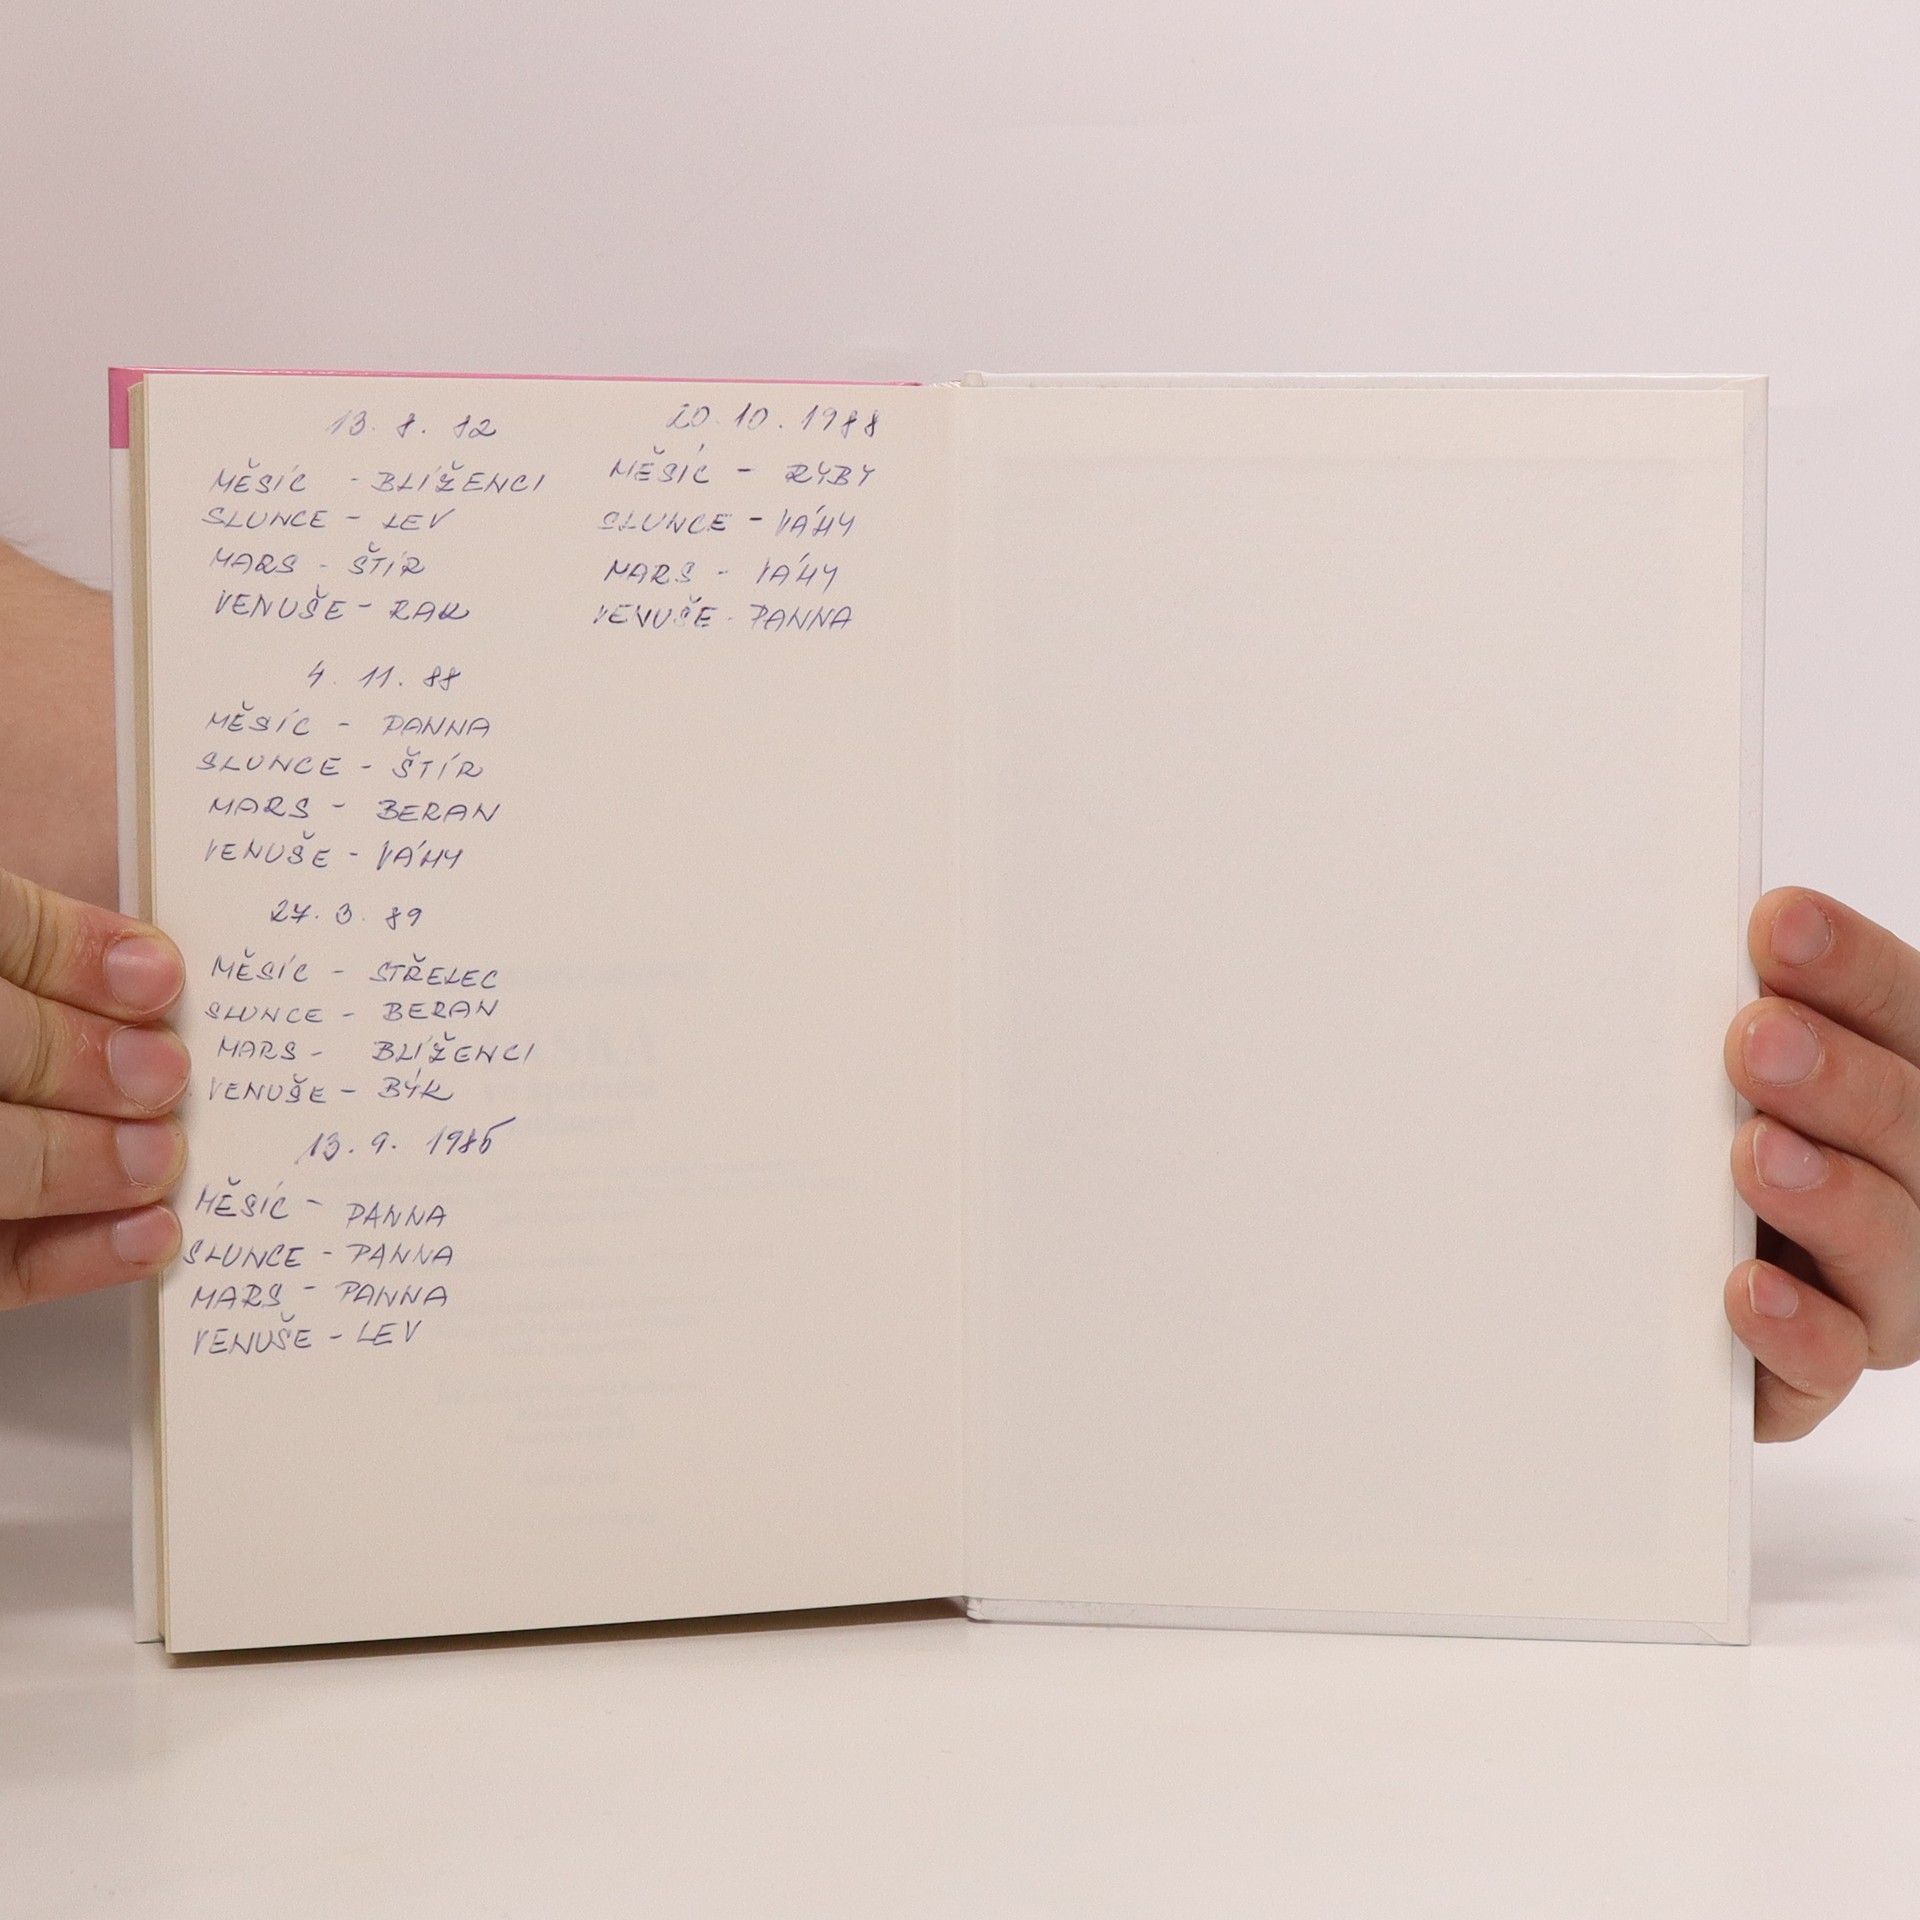 13. 8. 82
MĚSÍC - BLÍŽENCI
SLUNCE - LEV
MARS - ŠTÍR
VENUŠE - RAK
4. 11. 88
MĚSÍC - PANNA
SLUNCE - ŠTÍR
MARS - BERAN
VENUŠE - VÁHY
27. 3. 89
MĚSÍC - STŘELEC
SLUNCE - BERAN
MARS - BLÍŽENCI
VENUŠE - BÝK
13. 9. 1985
MĚSÍC - PANNA
SLUNCE - PANNA
MARS - PANNA
VENUŠE - LEV
20. 10. 1988
MĚSÍC - RYBY
SLUNCE - VÁHY
MARS - VÁHY
VENUŠE - PANNA